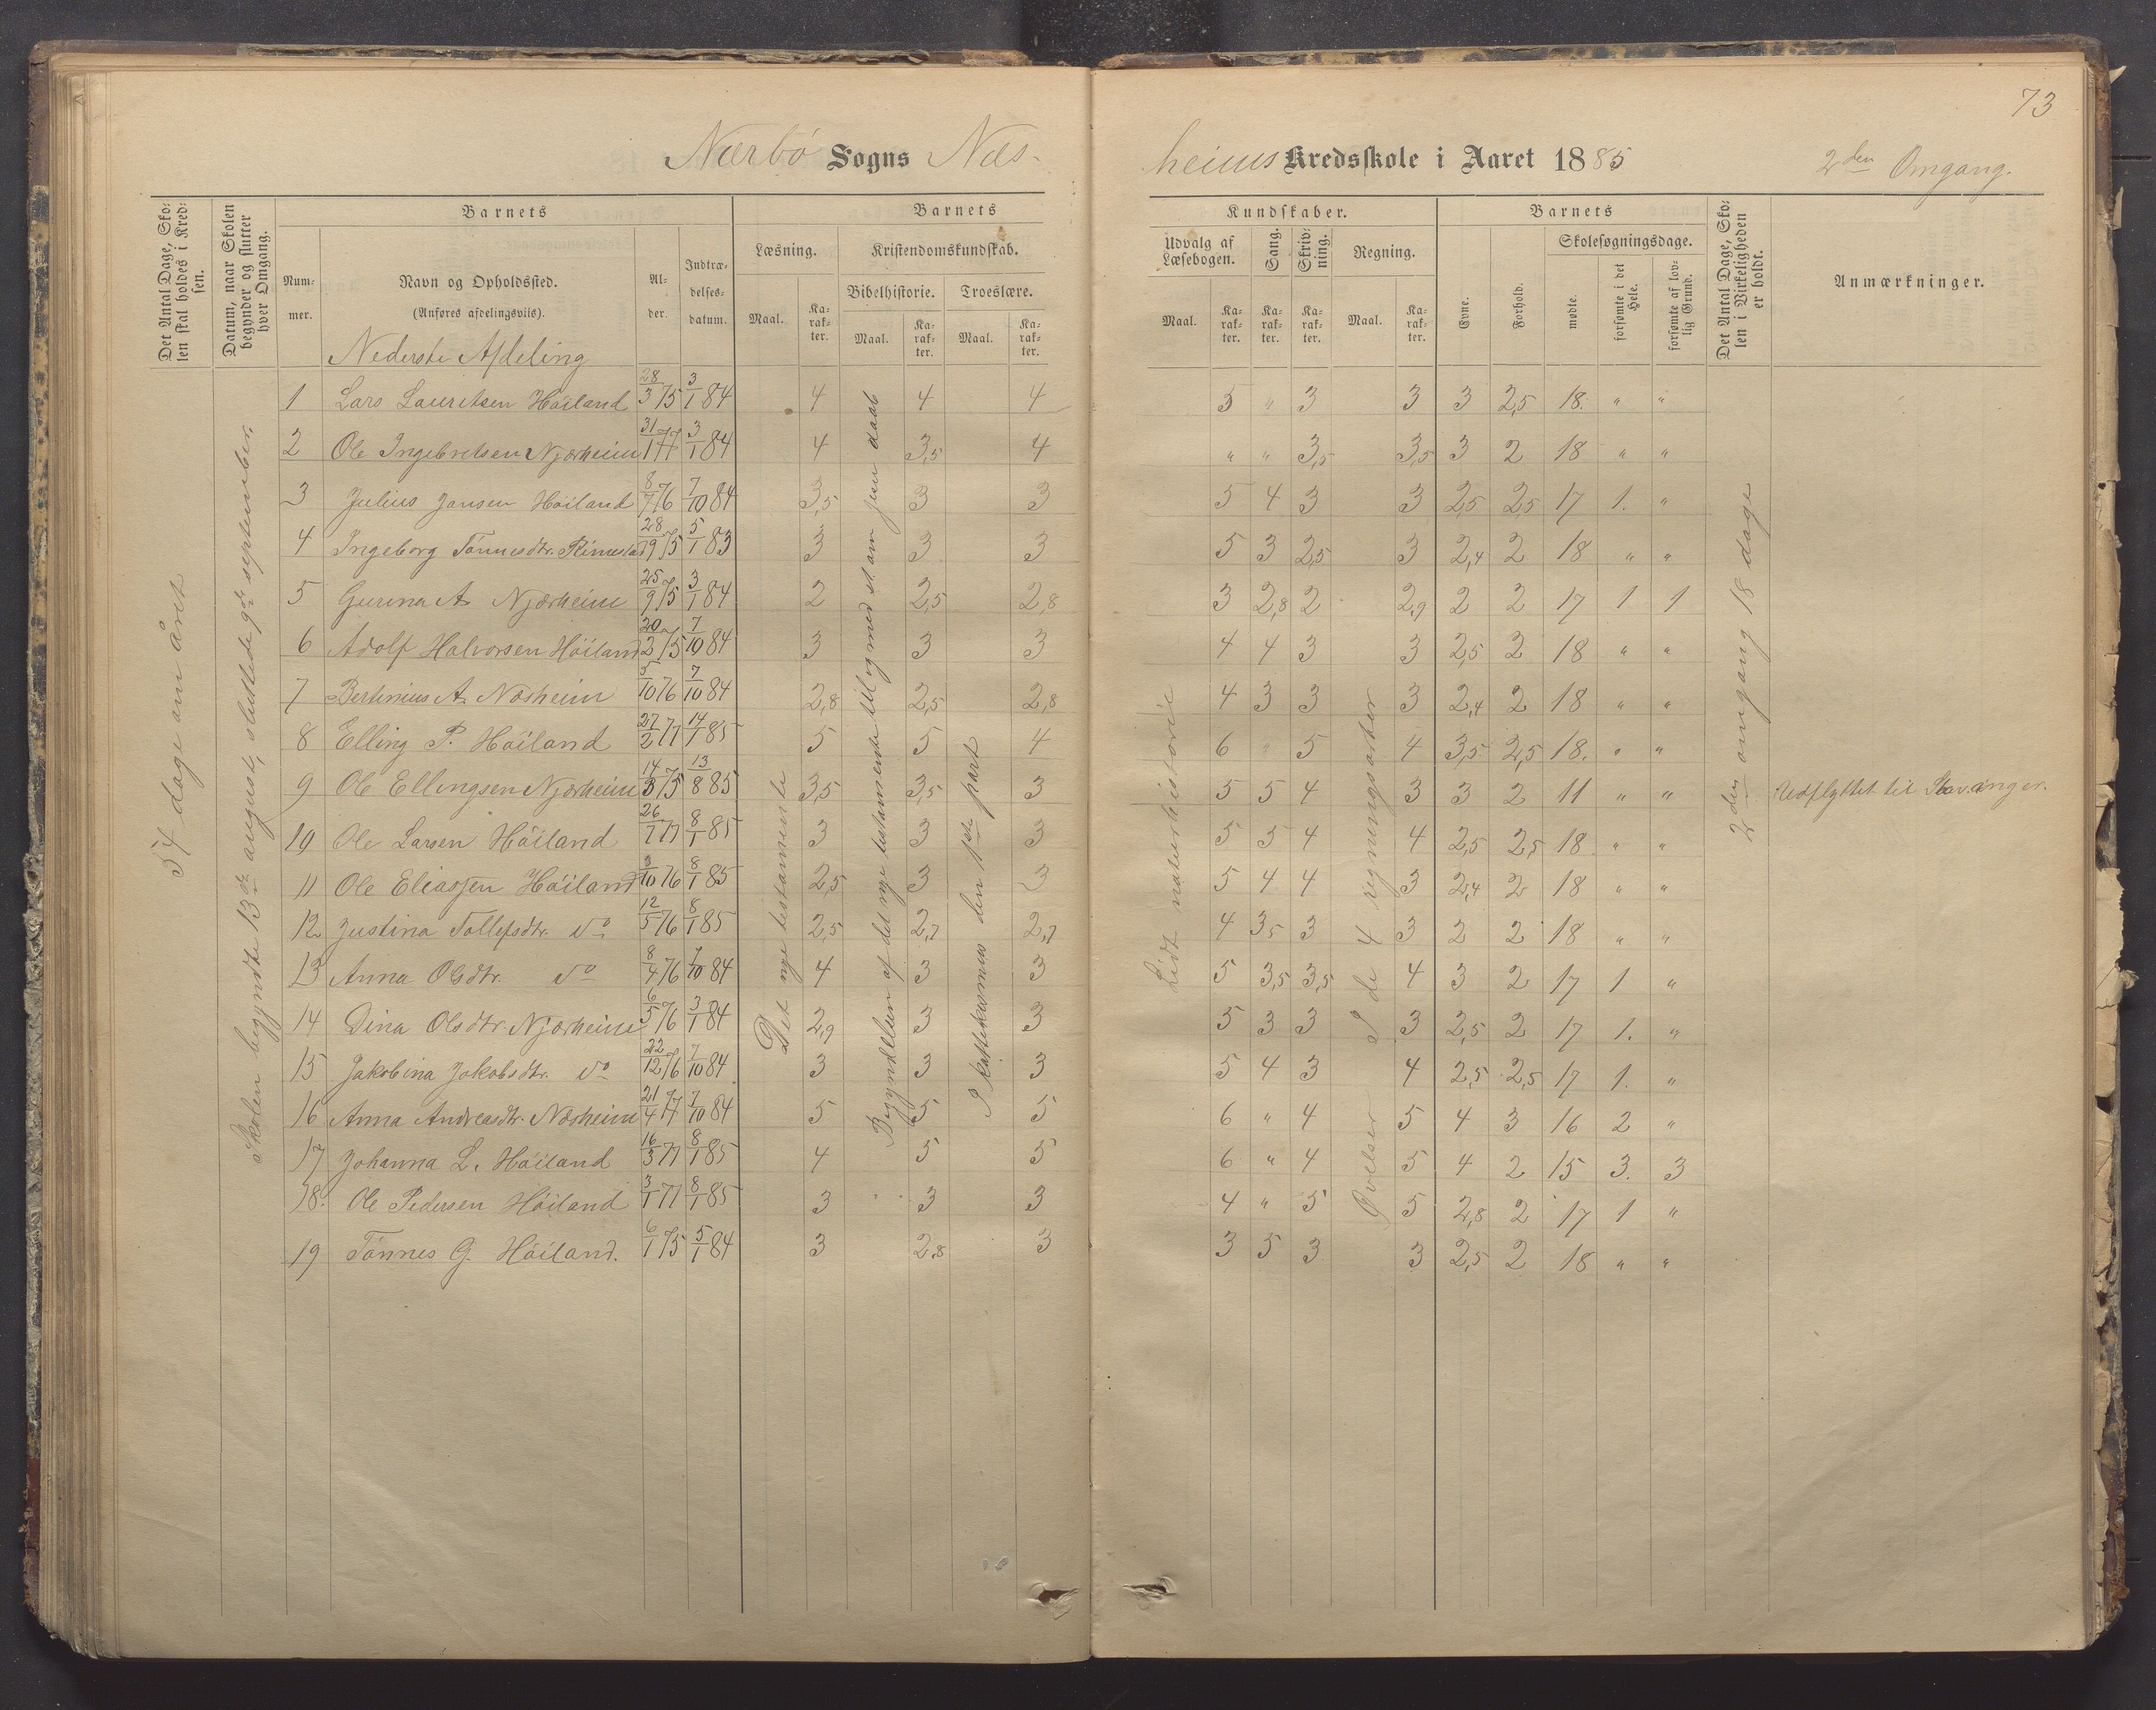 73
Nærbø Sogns Næs-
heims Kredsskole i Aaret 1885
2den Omgang.
Det Antal Dage, Skolen skal holdes i Kredsen.
Datum, naar Skolen begynder og slutter hver Omgang.
Barnets
Nummer.
Navn og Opholdssted.
(Anføres afdelingsviis).
Alder.
Indtrædelsesdatum.
Barnets
Læsning.
Kristendomskundskab.
Bibelhistorie.
Troeslære.
Maal.
Karakter.
Maal.
Karakter.
Maal.
Karakter.
Kundskaber.
Udvalg af Læsebogen.
Sang.
Skrivning.
Regning.
Maal.
Karakter.
Karakter.
Karakter.
Maal.
Karakter.
Barnets
Evne.
Forhold.
Skolesøgningsdage.
mødte.
forsømte i det Hele.
forsømte af lovlig Grund.
Det Antal Dage, Skolen i Virkeligheden er holdt.
Anmærkninger.
54 dage om året
Skolen begyndte 13de august, sluttede 9de september.
Det nye testamente
Begyndelsen af det nye testamente til og med st. om Jesu daab
I katekismus den 1ste part
Lidt naturhistorie
Øvelser I de 4 regningsarter
2den omgang 18 dage
Nederste Afdeling
1 Lars Lauritsen Høiland 28/3 75 3/1 84 4 4 4 5 " 3 3 3 2,5 18. " "
2 Ole Ingebretsen Njærheim 31/1 77 3/1 84 4 3,5 4 " " 3,5 3,5 3 2 18 " "
3 Julius Jansen Høiland 8/7 76 7/10 84 3,5 3 3 5 4 3 3 2,5 2,5 17 1. "
4 Ingeborg Tønnesdtr. Rimestad 28/9 75 5/1 83 3 3 3 5 3 2,5 3 2,4 2 18 " "
5 Gurina A. Njærheim 25/9 75 3/1 84 2 2,5 2,8 3 2,8 2 2,9 2 2 17 1 1
6 Adolf Halvorsen Høiland 20/3 75 7/10 84 3 3 3 4 4 3 3 2,5 2 18 " "
7 Bertinius A. Næsheim 5/10 76 7/10 84 2,8 2,5 2,8 4 3 3 3 2,4 2 18 " "
8 Elling P. Høiland 27/2 77 14/1 85 5 5 4 6 " 5 4 3,5 2,5 18. " "
9 Ole Ellingsen Njærheim 14/3 75 13/8 85 3,5 3,5 3 5 5 4 3 3 2 11 " " Udflyttet til Stavanger.
10 Ole Larsen Høiland 26/7 77 8/1 85 3 3 3 5 5 4 4 2,5 2,5 18 " "
11 Ole Eliassen Høiland 3/10 76 8/1 85 2,5 3 3 5 4 4 3 2,4 2 18 " "
12 Justina Tollefsdtr. do 12/5 76 8/1 85 2,5 2,7 2,7 4 3,5 3 3 2 2 18 " "
13 Anna Olsdtr. do 8/4 76 7/10 84 4 3 3 5 3,5 3,5 4 3 2 17 1 "
14 Dina Olsdtr Njærheim 6/5 76 3/1 84 2,9 3 3 5 3 3 3 2,5 2 17 1. "
15 Jakobina Jakobsdtr. do 22/12 76 7/10 84 3 3 3 5 4 3 4 2,5 2,5 17 1. "
16 Anna Andreasdtr. Næsheim 21/4 77 7/10 84 5 5 5 6 " 4 5 4 3 16 2 "
17 Johanna L. Høiland 16/3 77 8/1 85 4 5 5 6 " 4 5 4 2 15 3. 3
18. Ole Pedersen Høiland 3/1 77 8/1 85 3 3 3 4 " 5 5 2,8 2 17 1 "
19 Tønnes G. Høiland. 6/1 75 5/1 84 3 2,8 3 3 5 3 3 2,5 2 18 " "